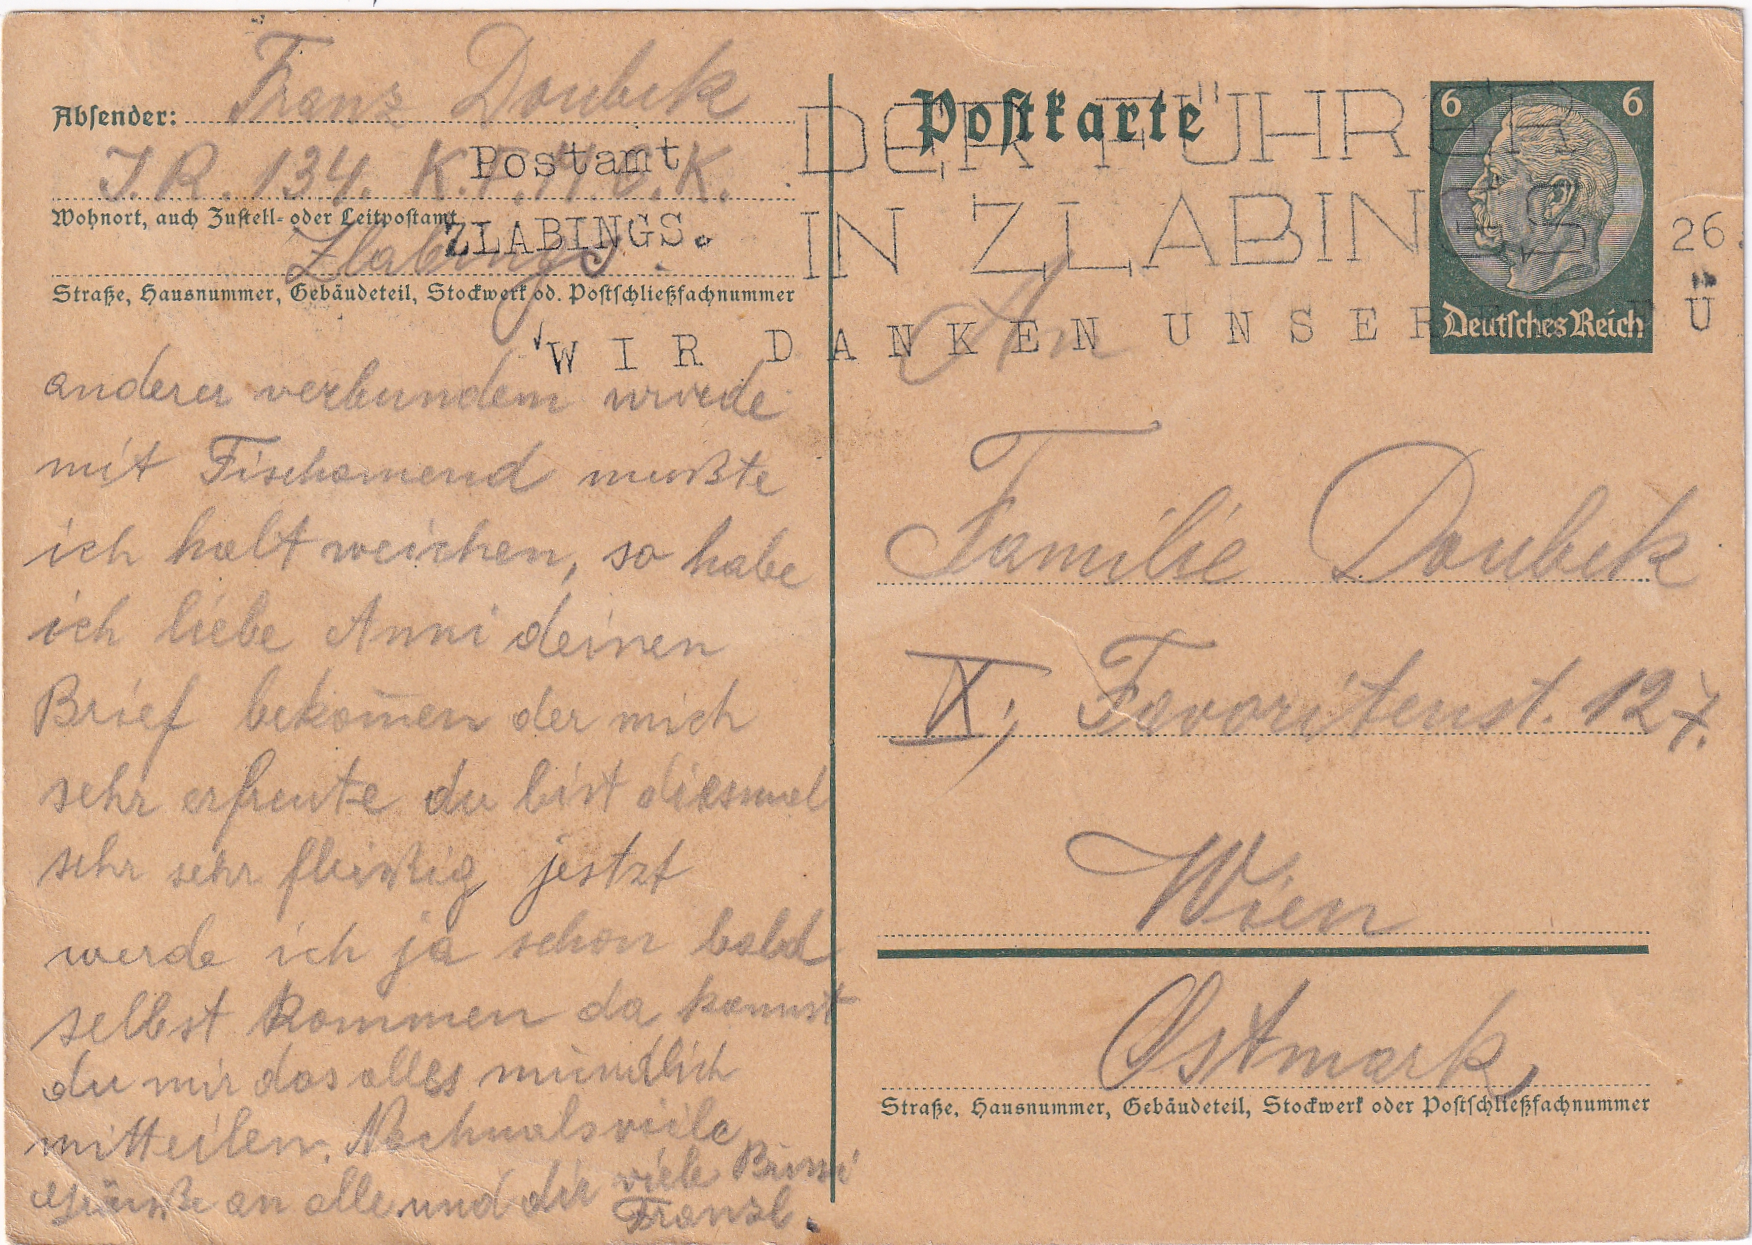 Absender: Franz Doubek
I.R. 134. K.
Postamt
Wohnort, auch Zustell- oder Leitpostamt
Zlabings.
ZLABINGS.
Straße, Hausnummer, Gebäudeteil, Stockwerk od. Postschließfachnummer
anderer verbundem wurde
mit Fischamend mußte
ich halt weichen, so habe
ich liebe Anni deinen
Brief bekom̅en der mich
sehr erfreute du bist diesmal
sehr sehr fleißig jestzt
werde ich ja schon bald
selbst kommen da kannst
du mir das alles mündlich
mitteilen. Nochmals viele
Grüße an alle und dir viele Bussi
Franzl.
Postkarte
DER FÜHRER
IN ZLABINGS
26.
WIR DANKEN UNSER
6 6
Deutsches Reich
An
Familie Doubek
X; Favoritenst. 127.
Wien
Ostmark
Straße, Hausnummer, Gebäudeteil, Stockwerk oder Postschließfachnummer